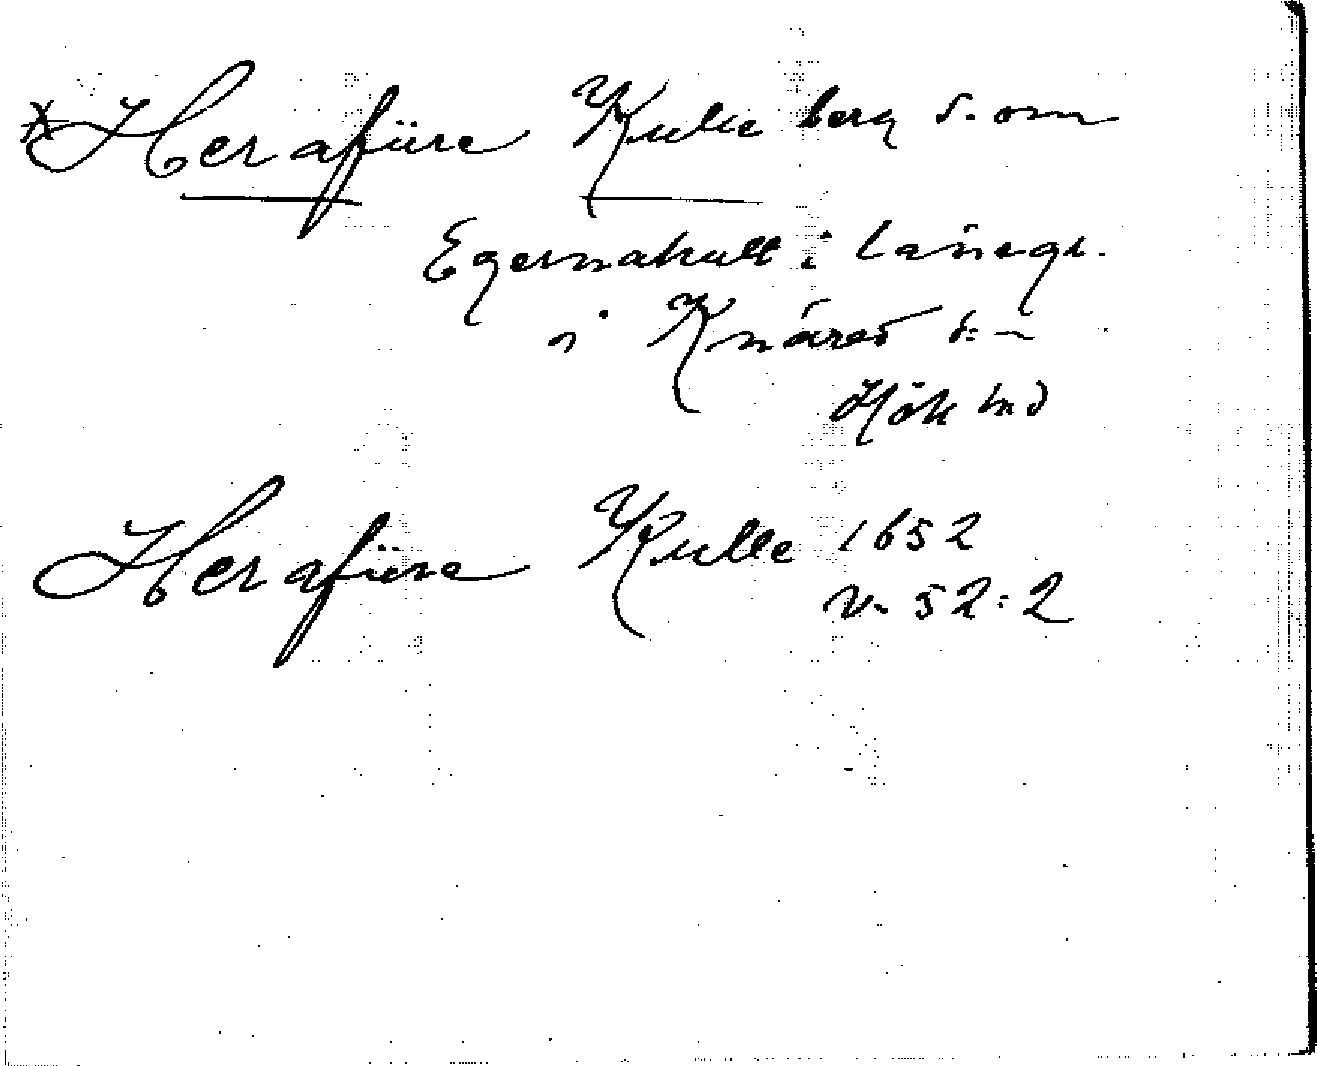 Herafüre Kulle berg s. om
Egernahult i
i Knäred s:n
Hök hd
Herafüre Kulle 1652
v. 52:2